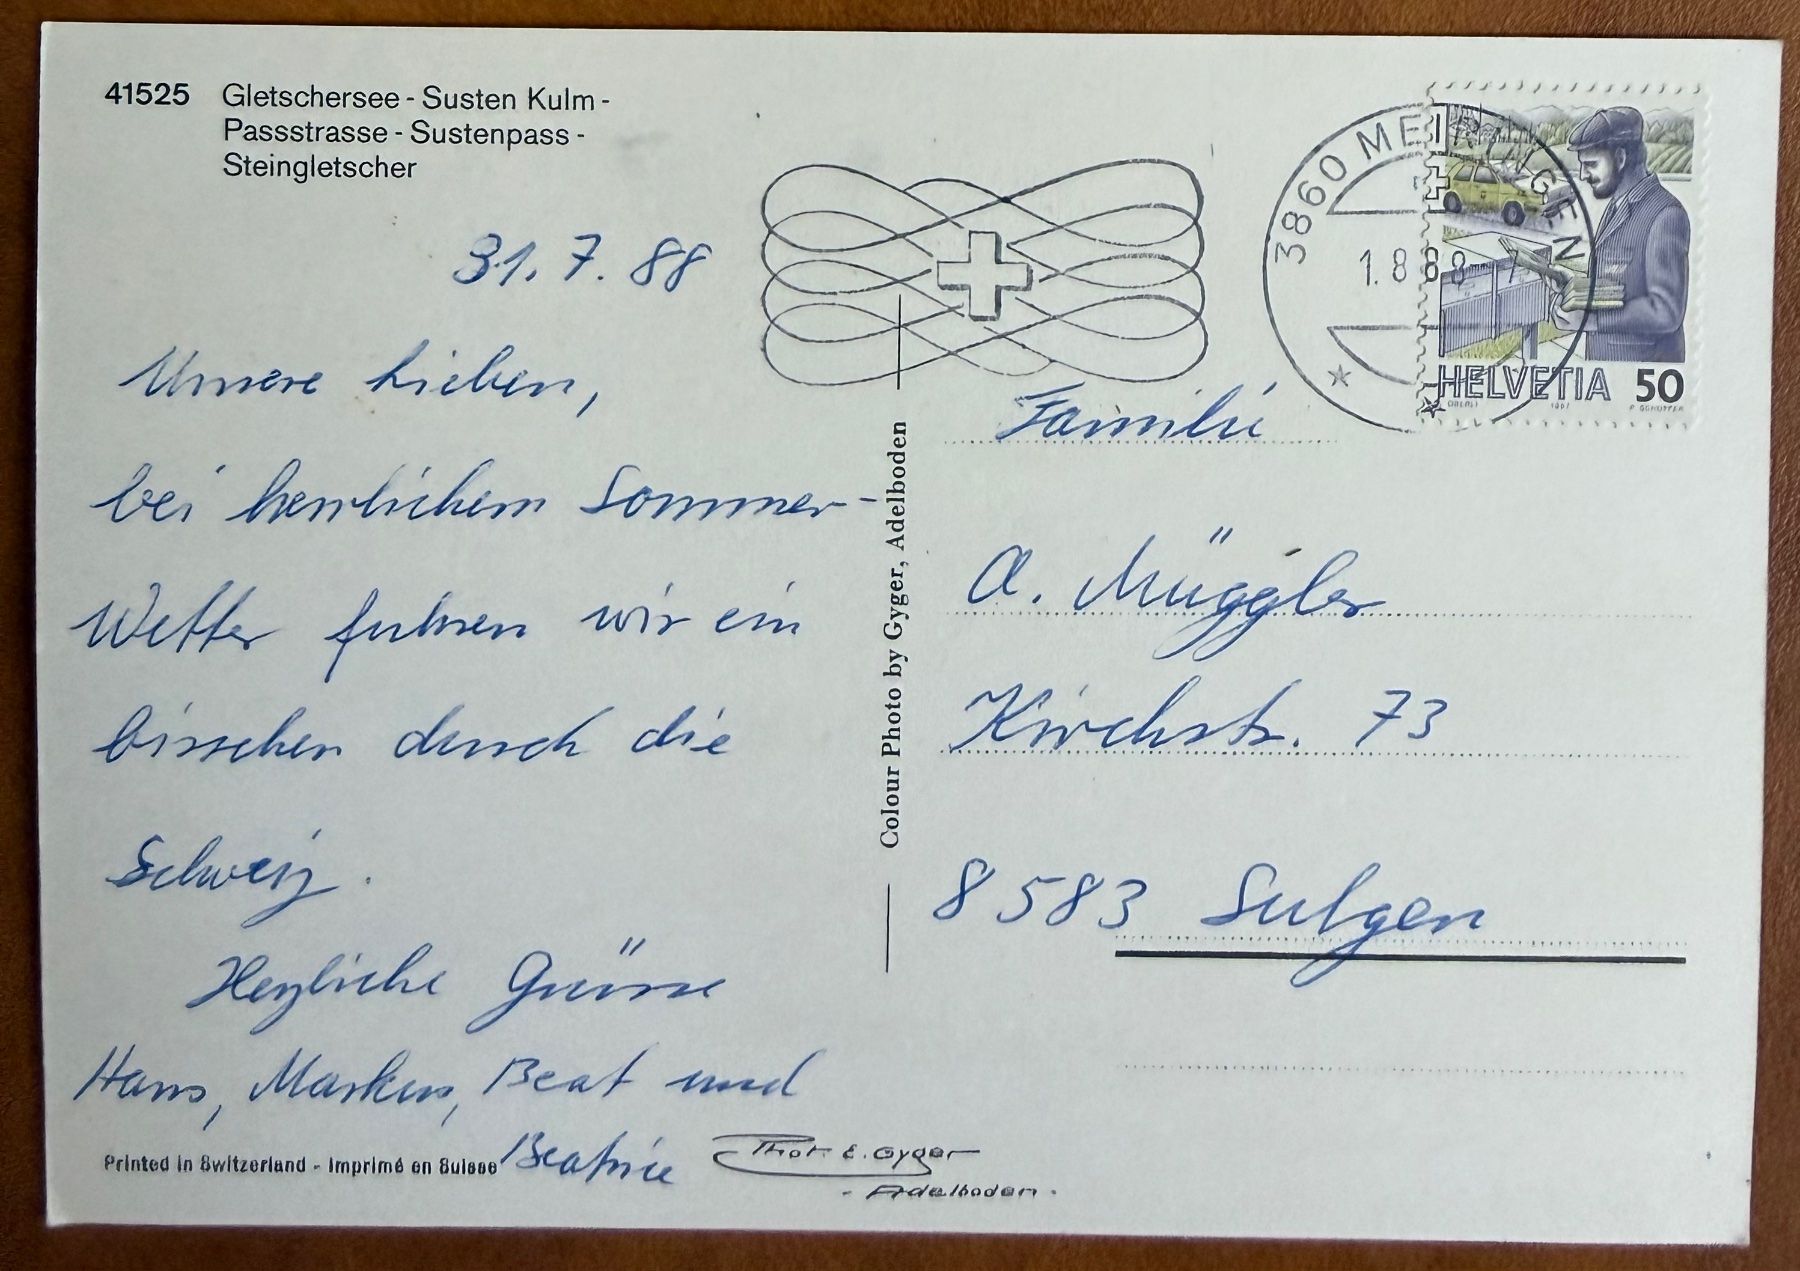 41525 Gletschersee - Susten Kulm -
Passstrasse - Sustenpass -
Steingletscher
31. 7. 88
Unsere Lieben,
bei herrlichem Sommer-
Wetter fuhren wir ein
bisschen durch die
Schweiz.
Herzliche Grüsse
Hans, Markus, Beat und
Beatrice
Printed in Switzerland - Imprimé en Suisse
Phot. E. Gyger
- Adelboden -
Colour Photo by Gyger, Adelboden
3860 MEIRINGEN
1.8.88 - 7
HELVETIA 50
1987 P. SCHOPFER
Familie
A. Müggler
Kirchstr. 73
8583 Sulgen